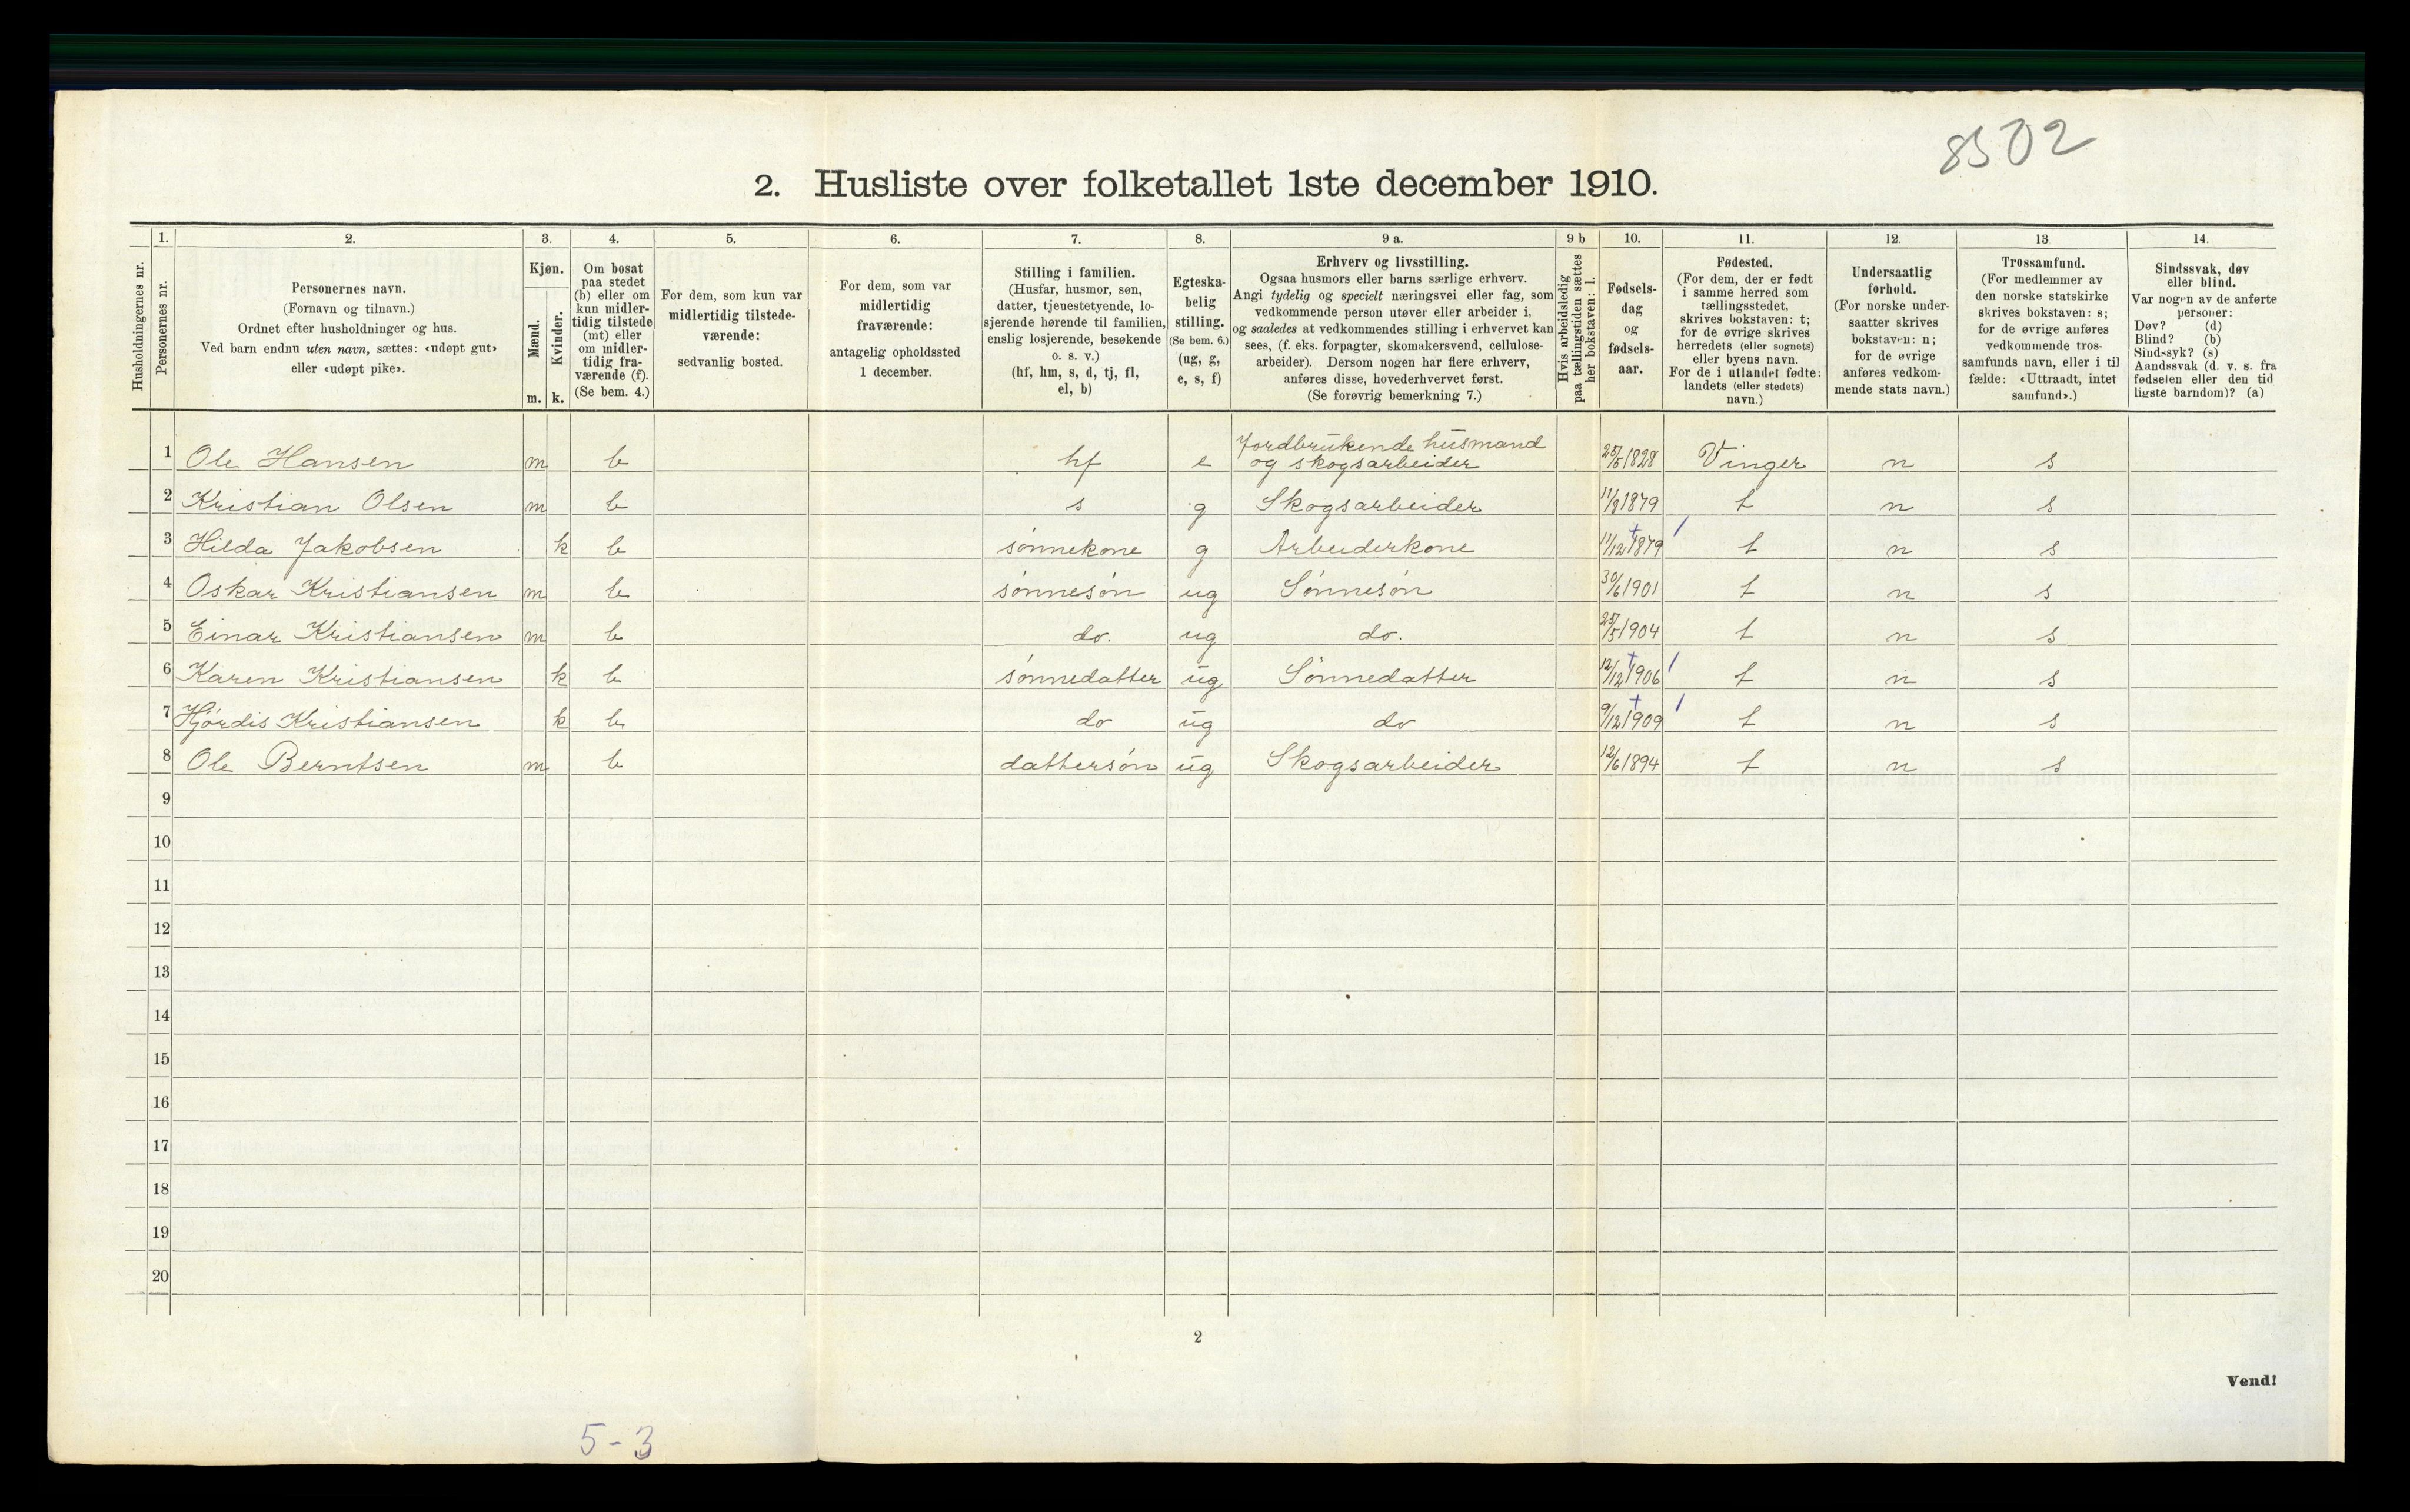 8502
2. Husliste over folketallet 1ste december 1910.
Husholdningernes nr.
1. Personernes nr.
2. Personernes navn.
(Fornavn og tilnavn.)
Ordnet efter husholdninger og hus.
Ved barn endnu uten navn, sættes: «udøpt gut»
eller «udøpt pike».
3. Kjøn.
Mænd. Kvinder.
m. k.
4. Om bosat
paa stedet
(b) eller om
kun midler-
tidig tilstede
(mt) eller
om midler-
tidig fra-
værende (f).
(Se bem. 4.)
5. For dem, som kun var
midlertidig tilstede-
værende:
sedvanlig bosted.
6. For dem, som var
midlertidig
fraværende:
antagelig opholdssted
1 december.
7. Stilling i familien.
(Husfar, husmor, søn,
datter, tjenestetyende, lo-
sjerende hørende til familien,
enslig losjerende, besøkende
o. s. v.)
(hf, hm, s, d, tj, fl,
el, b)
8. Egteska-
belig
stilling.
(Se bem. 6.)
(ug, g,
e, s, f)
9 a. Erhverv og livsstilling.
Ogsaa husmors eller barns særlige erhverv.
Angi tydelig og specielt næringsvei eller fag, som
vedkommende person utøver eller arbeider i,
og saaledes at vedkommendes stilling i erhvervet kan
sees, (f. eks. forpagter, skomakersvend, cellulose-
arbeider). Dersom nogen har flere erhverv,
anføres disse, hovederhvervet først.
(Se forøvrig bemerkning 7.)
9 b Hvis arbeidsledig
paa tællingstiden sættes
her bokstaven: l.
10. Fødsels-
dag
og
fødsels-
aar.
11. Fødested.
(For dem, der er født
i samme herred som
tællingsstedet,
skrives bokstaven: t;
for de øvrige skrives
herredets (eller sognets)
eller byens navn.
For de i utlandet fødte:
landets (eller stedets)
navn.)
12. Undersaatlig
forhold.
(For norske under-
saatter skrives
bokstaven: n;
for de øvrige
anføres vedkom-
mende stats navn.)
13 Trossamfund.
(For medlemmer av
den norske statskirke
skrives bokstaven: s;
for de øvrige anføres
vedkommende tros-
samfunds navn, eller i til
fælde: «Uttraadt, intet
samfund».)
14. Sindssvak, døv
eller blind.
Var nogen av de anførte
personer:
Døv? (d)
Blind? (b)
Sindssyk? (s)
Aandssvak (d. v. s. fra
fødselen eller den tid
ligste barndom)? (a)
1 Ole Hansen m b hf e Jordbrukende husmand og skogsarbeider 25/5 1828 Vinger n s
2 Kristian Olsen m b s g Skogsarbeider 11/8 1879 t n s
3 Hilda Jakobsen k b sønnekone g Arbeiderkone 11/12 1879 t n s
4 Oskar Kristiansen m b sønnesøn ug Sønnesøn 30/6 1901 t n s
5 Einar Kristiansen m b do. ug do. 25/5 1904 t n s
6 Karen Kristiansen k b sønnedatter ug Sønnedatter 12/12 1906 t n s
7 Hjørdis Kristiansen k b do ug do 9/12 1909 t n s
8 Ole Berntsen m b dattersøn ug Skogsarbeider 12/6 1894 t n s
9
10
11
12
13
14
15
16
17
18
19
20
2
Vend!
5-3